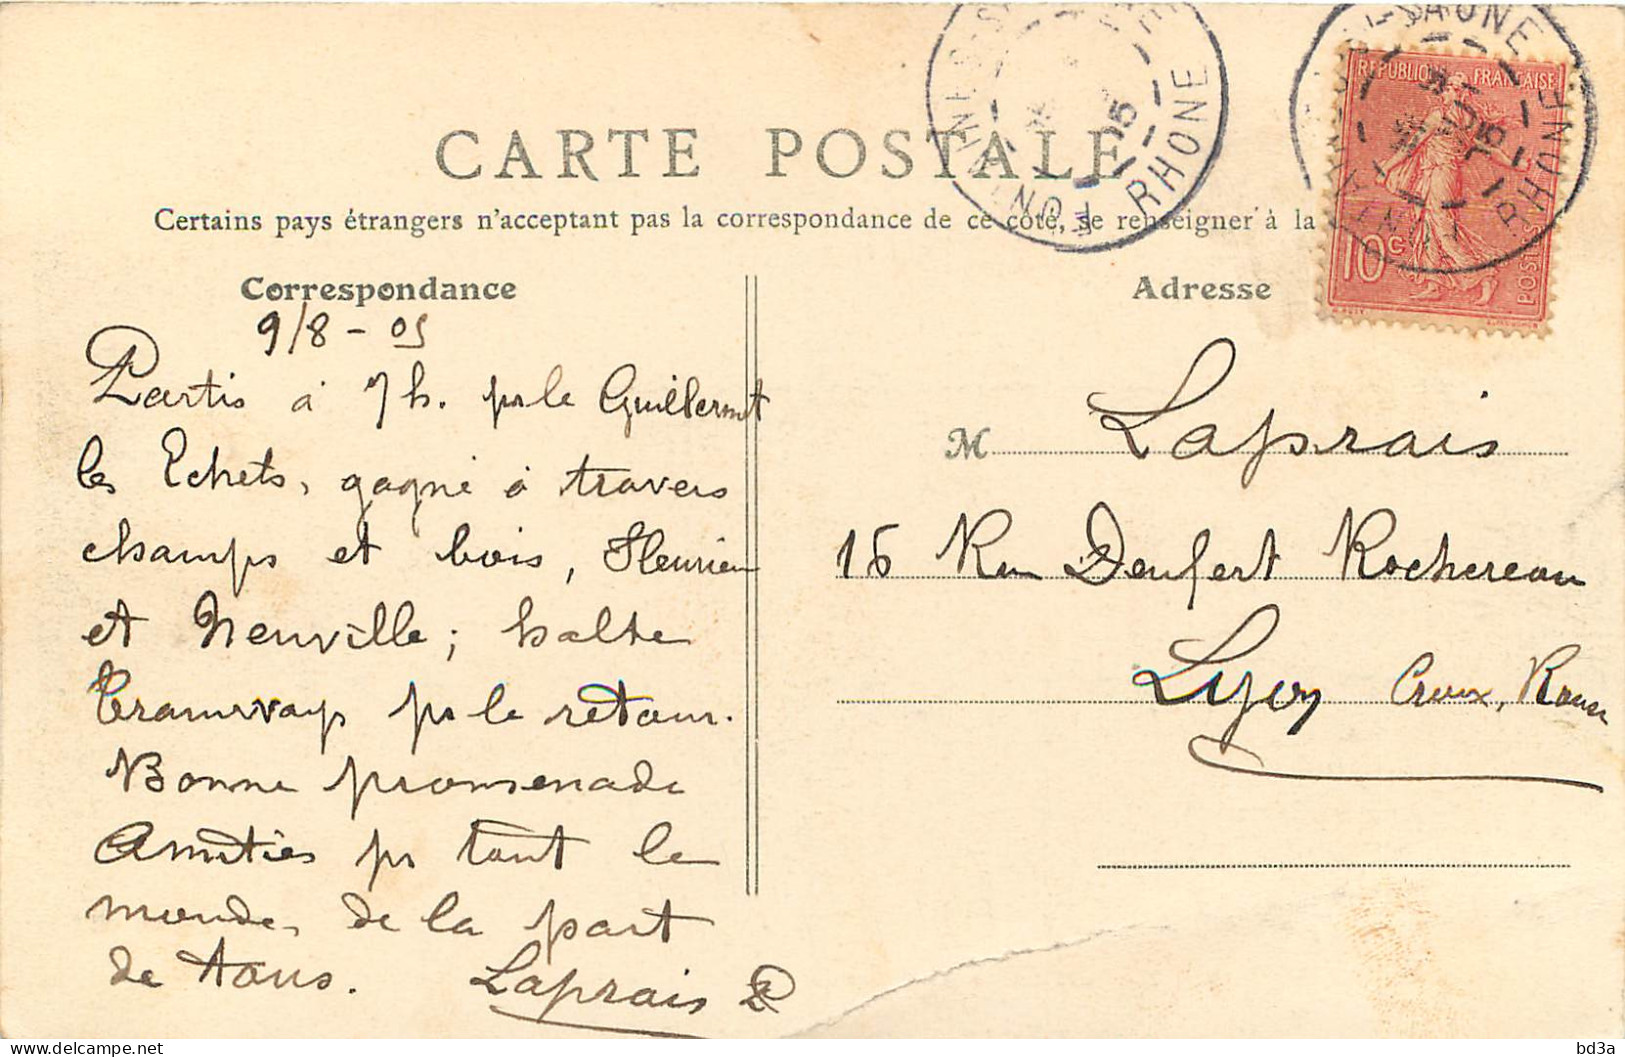 CARTE POSTALE
Certains pays étrangers n'acceptent pas la correspondance de ce côté, se renseigner à la
Correspondance
9/8 - 05
Partis à 7 h. pr le Guillermet
les Echets, gagné à travers
champs et bois, Fleurieu
et Neuville ; halte
tramways pr le retour.
Bonne promenade
Amitiés pr tout le
monde, de la part
de tous. Laprais
Adresse
M Laprais
16 Rue Denfert Rochereau
Lyon Croix, Rousse
REPUBLIQUE FRANÇAISE
10c
POSTES
SAONE
RHONE
RHONE
05
bd3a